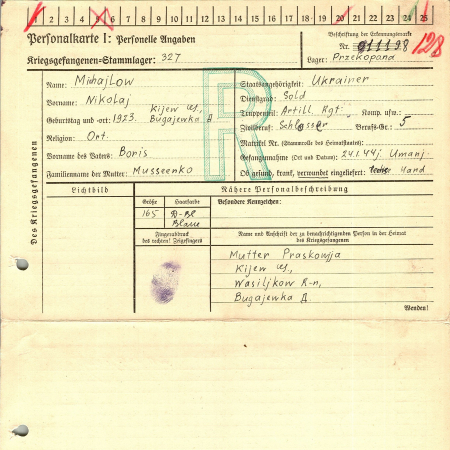 1 2 3 4 5 6 7 8 9 10 11 12 13 14 15 16 17 18 19 20 21 22 23 24 25
Personalkarte I: Personelle Angaben
Beschriftung der Erkennungsmarke
Nr. 911198 128
Kriegsgefangenen-Stammlager: 327
Lager: Przekopana
Des Kriegsgefangenen
Name: Mihajlow
Vorname: Nikolaj
Kijew
Geburtstag und -ort: 1923. Bugajewka
Religion: Ort.
Vorname des Vaters: Boris
Familienname der Mutter: Musseenko
R
Staatsangehörigkeit: Ukrainer
Dienstgrad: Sold
Truppenteil: Artill. Rgt. Komp. usw.:
Zivilberuf: Schlosser Berufs-Gr.: 5
Matrikel Nr. (Stammrolle des Heimatstaates):
Gefangennahme (Ort und Datum): 24.1.44j. Umanj
Ob gesund, krank, verwundet eingeliefert:
Lichtbild
Nähere Personalbeschreibung
Größe Haarfarbe Besondere Kennzeichen:
165
Fingerabdruck
des rechten! Zeigefingers
Name und Anschrift der zu benachrichtigenden Person in der Heimat
des Kriegsgefangenen
Mutter Praskowja
Kijew
Wasiljkow R-n,
Bugajewka Д
Wenden!